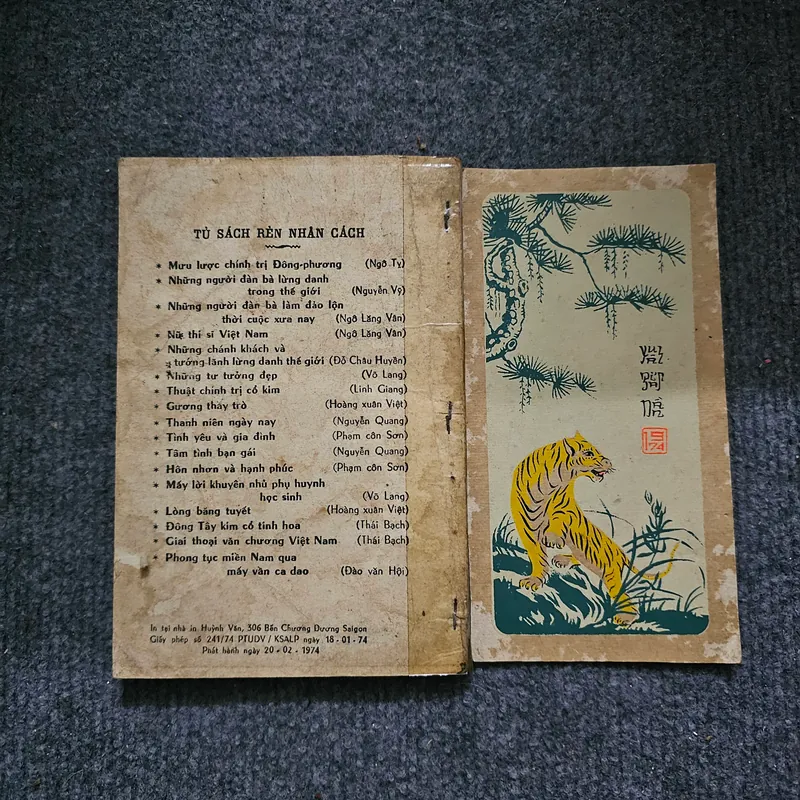 TỦ SÁCH RÈN NHÂN CÁCH
* Mưu lược chính trị Đông-phương (Ngô Tỵ)
* Những người đàn bà lừng danh
trong thế giới (Nguyễn Vỹ)
* Những người đàn bà làm đảo lộn
thời cuộc xưa nay (Ngô Lãng Vân)
* Nữ thi sĩ Việt Nam (Ngô Lãng Vân)
* Những chánh khách và
tướng-lãnh lừng danh thế giới (Đỗ Châu Huyền)
* Những tư tưởng đẹp (Võ Lang)
* Thuật chính trị cổ kim (Linh Giang)
* Gương thầy trò (Hoàng xuân Việt)
* Thanh niên ngày nay (Nguyễn Quang)
* Tình yêu và gia đình (Phạm côn Sơn)
* Tâm tình bạn gái (Nguyễn Quang)
* Hôn nhơn và hạnh phúc (Phạm côn Sơn)
* Mấy lời khuyên nhủ phụ huynh
học sinh (Võ Lang)
* Lòng băng tuyết (Hoàng xuân Việt)
* Đông Tây kim cổ tinh hoa (Thái Bạch)
* Giai thoại văn chương Việt Nam (Thái Bạch)
* Phong tục miền Nam qua
mấy vần ca dao (Đào văn Hội)
In tại nhà in Huỳnh Văn, 306 Bến Chương Dương Saigon
Giấy phép số 241/74 PTUDV / KSALP ngày 18-01-74
Phát hành ngày 20-02-1974
19
74